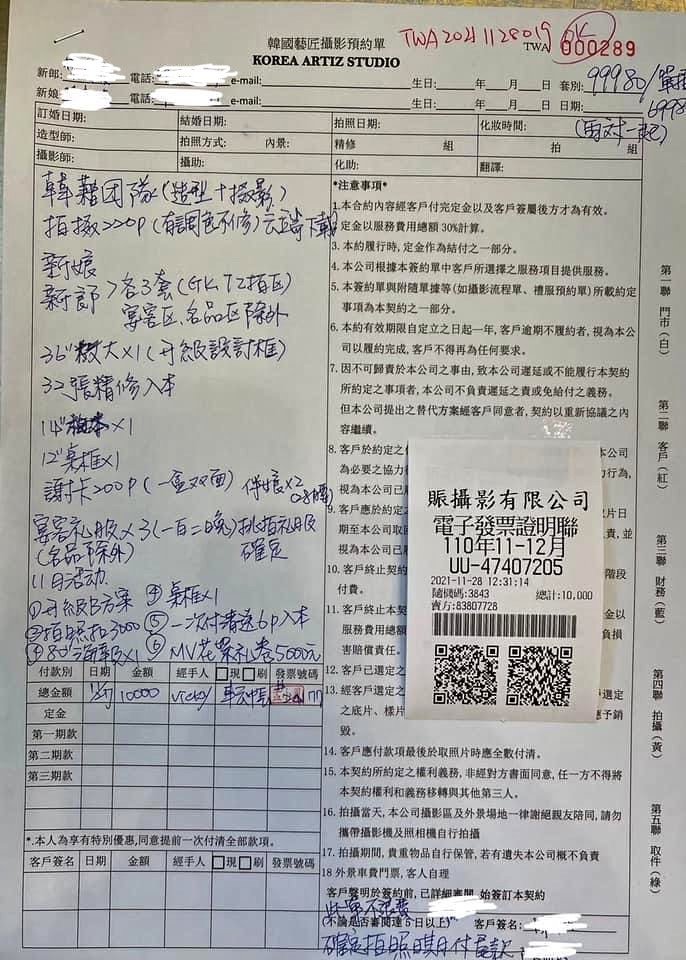 韓國藝匠攝影預約單
KOREA ARTIZ STUDIO
TWA2021128019
OK
TWA 000289
新郎: 電話: e-mail: 生日: 年 月 日 套別: 99980/單
新娘: 電話: e-mail: 生日: 年 月 日 日期: 6998
(兩對一起)
訂婚日期: 結婚日期: 拍照日期: 化妝時間:
造型師: 拍照方式: 內景: 精修 組 拍 組
攝影師: 攝助: 化助: 翻譯:
韓籍团隊(造型+攝影)
拍摄220P(有調色不修)云端下載
新娘
新郎 >各3套(GK、TZ拍区)
宴客区、名品区除外
36"放大x1(升級設計框)
32張精修入本
14" x1
12"桌框x1
謝卡200P(一盒双面) 伴娘x2
宴客礼服x3(一白二晚)挑拍礼服
(名品除外) 確定
11月活动
①升級B方案 ④桌框x1
②拍照扣3000 ⑤一次付清送6P入本
80" x1 ⑥MV花菜礼卷5000元
付款別 日期 金額 經手人 □現□刷 發票號碼
總金額 10000 Vicky
定金
第一期款
第二期款
第三期款
*.本人為享有特別優惠,同意提前一次付清全部款項。
客戶簽名 日期 金額 經手人 □現□刷 發票號碼
*注意事項*
1.本合約內容經客戶付完定金以及客戶簽屬後方才為有效。
定金以服務費用總額30%計算。
3.本約履行時,定金作為結付之一部分。
4.本公司根據本簽約單中客戶所選擇之服務項目提供服務。
5.本簽約單與附隨單據等(如攝影流程單、禮服預約單)所載約定
事項為本契約之一部分。
6.本約有效期限自定立之日起一年,客戶逾期不履約者,視為本公
司以履約完成,客戶不得再為任何要求。
7.因不可歸責於本公司之事由,致本公司遲延或不能履行本契約
所約定之事項者,本公司不負責遲延之責或免給付之義務。
但本公司提出之替代方案經客戶同意者,契約以重新協議之內
容繼續。
8.客戶於約定之 本公司
為必要之協力 行為,
視為本公司已
9.客戶應於約定 片日
期至本公司取 責,並
視為本公司已
10.客戶終止契 階段
付費。
11.客戶終止本 金以
服務費用總額 負損
害賠償責任。
12.客戶已選定之
13.經客戶選定之 選定
之底片、樣片 應予銷
毀。
14.客戶應付款項最後於取照片時應全數付清。
15.本契約所約定之權利義務,非經對方書面同意,任一方不得將
本契約權利和義務移轉與其他第三人。
16.拍攝當天,本公司攝影區及外景場地一律謝絕親友陪同,請勿
攜帶攝影機及照相機自行拍攝
17.拍攝期間,貴重物品自行保管,若有遺失本公司概不負責
18 外景車費門票,客人自理
客戶聲明於簽約前,已詳細審閱 始簽訂本契約
此單不退費
(不論是否審閱達5日以上) 客戶簽名:
確定拍照期付尾款
賑攝影有限公司
電子發票證明聯
110年11-12月
UU-47407205
2021-11-28 12:31:14
隨機碼:3843 總計:10,000
賣方:83807728
第一聯 門市(白)
第二聯 客戶(紅)
第三聯 財務(藍)
第四聯 拍攝(黃)
第五聯 取件(綠)